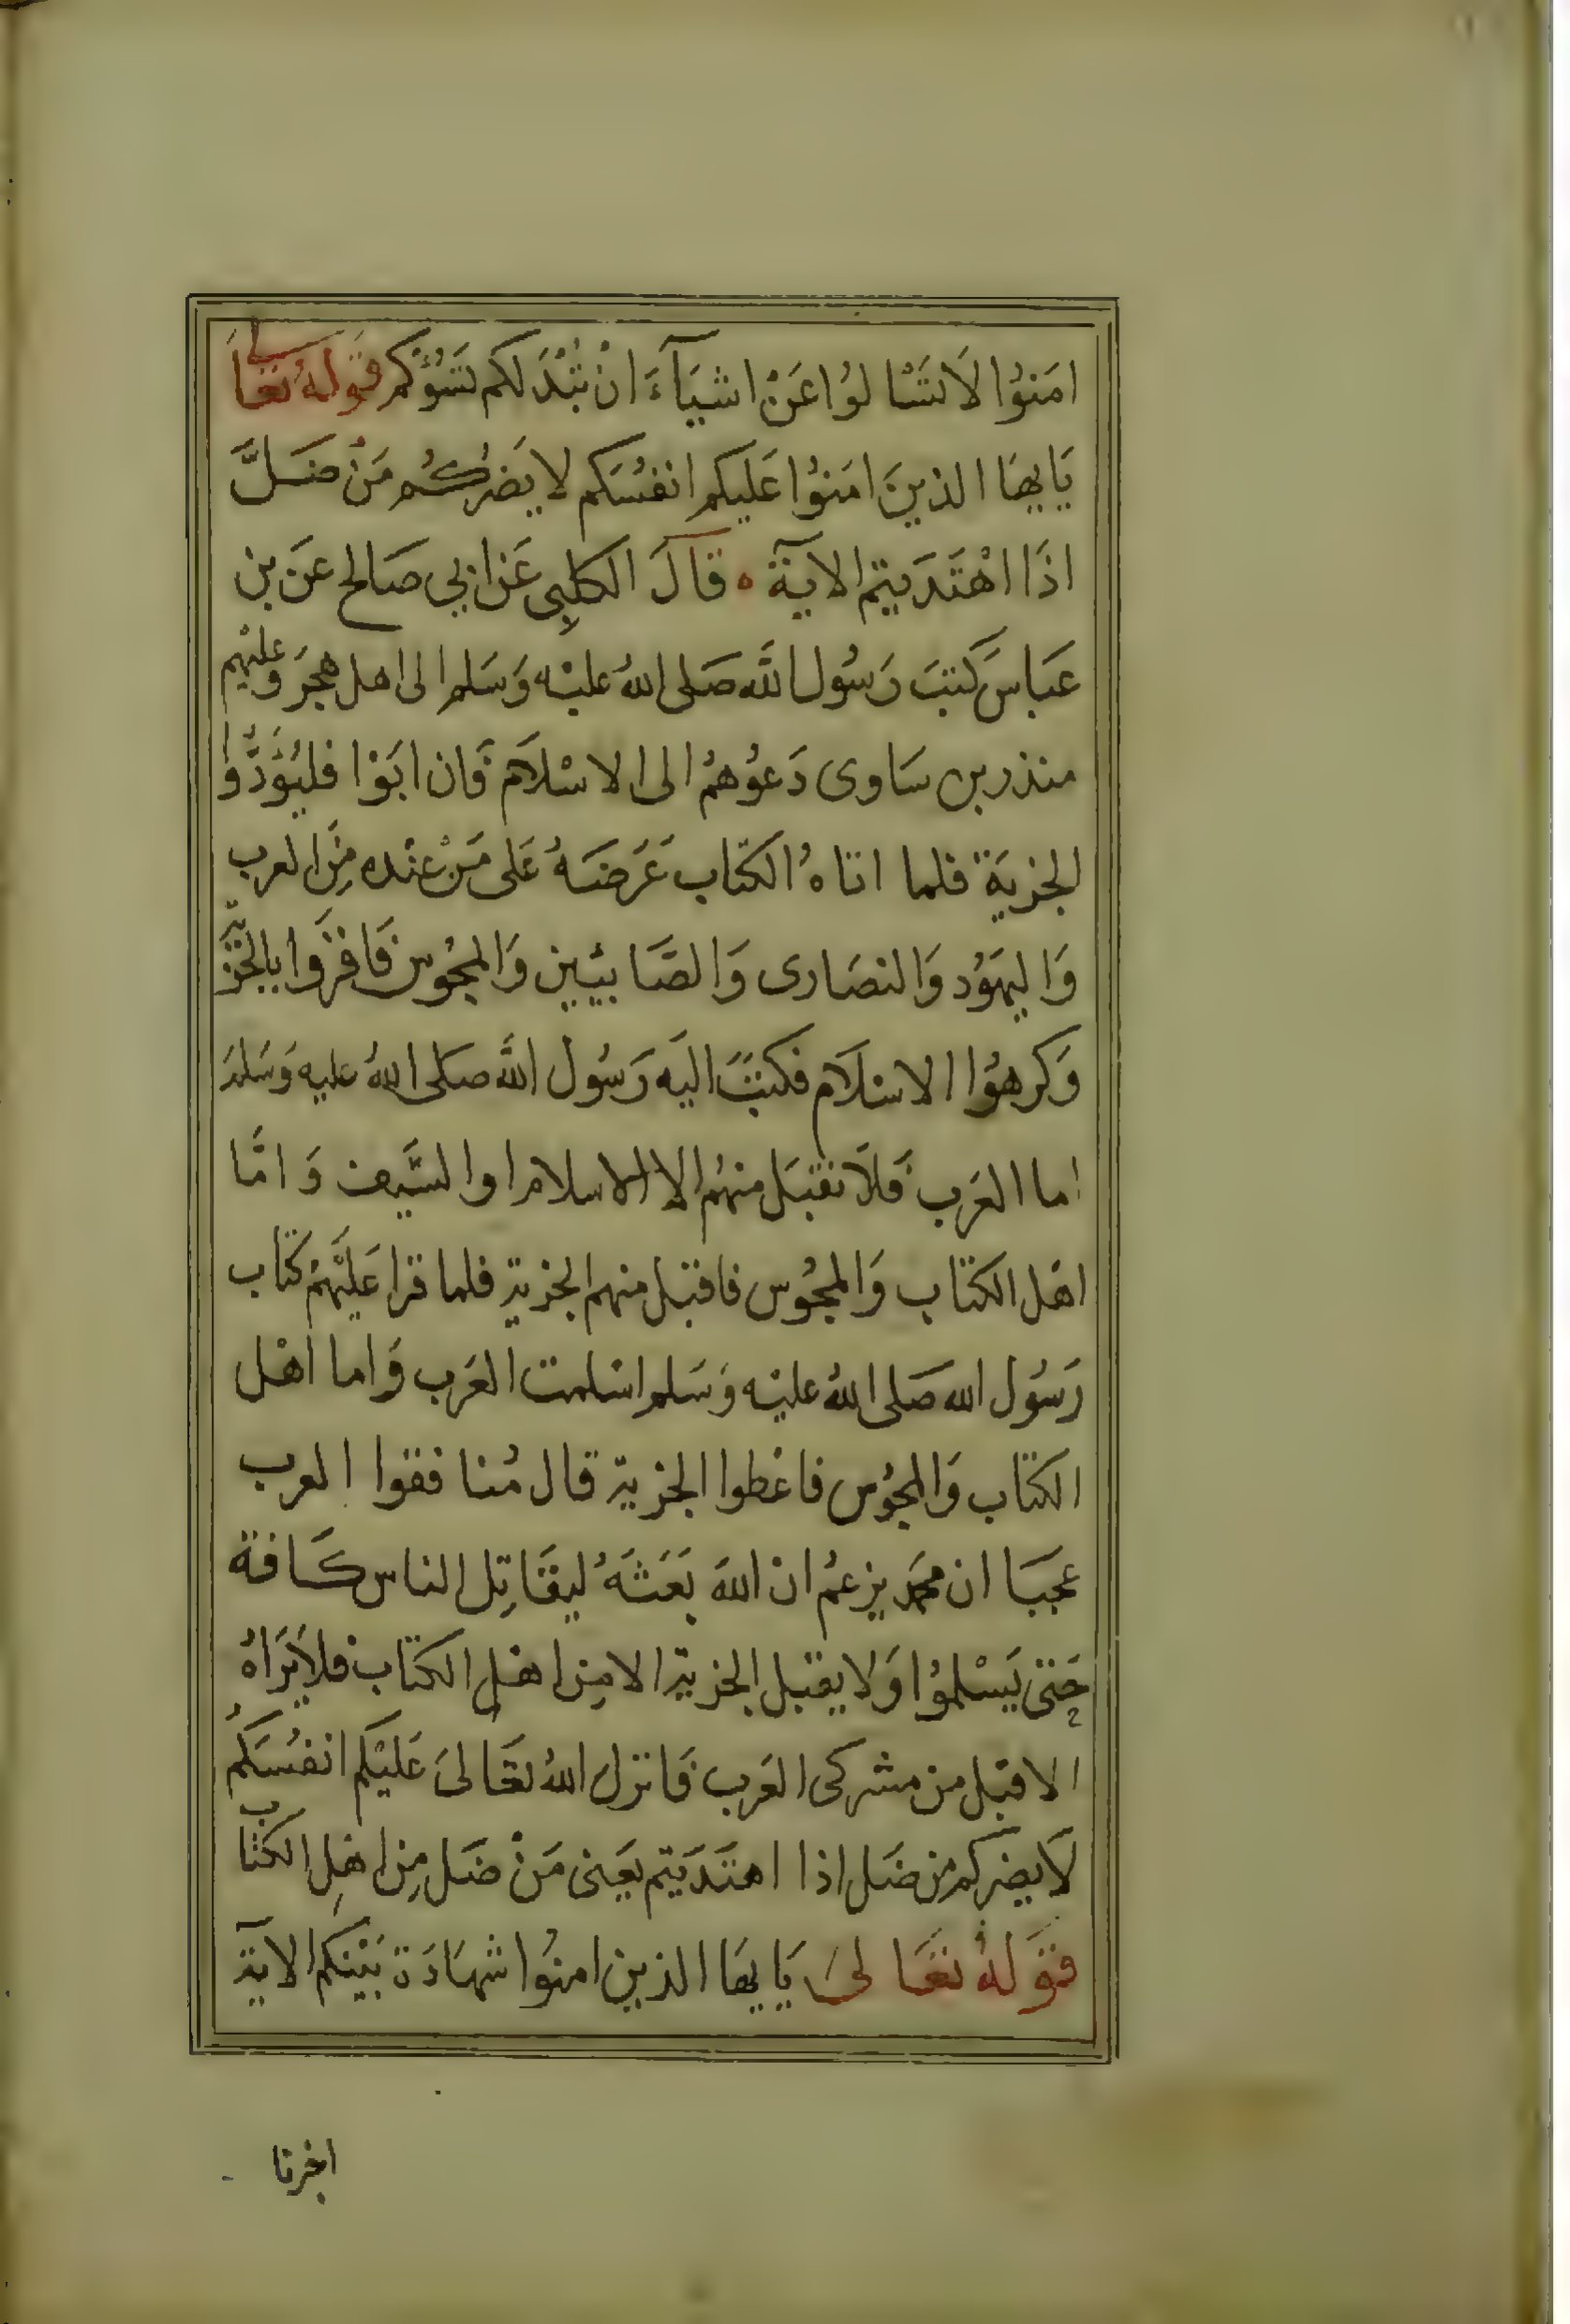 امَنوُا لَا تَسْالوُا عَنْ اشيَآءَ انْ تُبْدَ لكم تَسُؤْكم قَوله تعَالى
يَايهَا الذينَ امَنوُا عَليكم انفسُكم لا يَضركُم مَنْ ضَلَّ
اذَا اهْتَدَيتم الاية ه قالَ الكلبى عَن ابي صَالح عَن بن
عَباسَ كتبَ رَسُول الله صَلى اللهُ عليْه وَسَلم الى اهل هجَر وَعليْهم
منذر بن سَاوى دَعوُهمُ الى الاسْلام فَان ابَوْا فليُؤَدُّوا
الجزيَة فلما اتاهُ الكتاب عَرَضَهُ عَلى مَنْ عنْده مِنَ العرب
وَاليهَوُد وَالنصَارى وَالصَّابئيين وَالمجُوس فَاقرَّوا بالجزية
وَكرهوُا الاسْلَام فكتبَ اليَه رَسُول اللَّه صَلى اللهُ عليه وَسَلمَ
اما العَرَب فَلَا تقتبَل منهُم الا الاسلام او السَّيف وَامَّا
اهْل الكتاب وَالمجُوس فاقتبل منهم الجزية فلما قرا عَليَهْم كتاب
رَسُول الله صَلى اللهُ عليْه وَسَلم اسْلمت العَرب وَاما اهْل
الكتاب وَالمجُوس فاعْطوا الجزية قال مُنافقوا العرب
عجبَا ان محَمد يزعمُ ان اللهَ بَعَثهُ ليقَاتِل الناس كَافة
حَتى يَسْلموُا وَلا يقبَل الجزية الا مِن اهْل الكتاب فلَا نَرَاهُ
الا قبَل من مشركى العَرب فَانزل اللهُ تعَالىَ عَليْكم انفسُكمُ
لَا يضركم من ضَل اذا اهتدَيتم يعَنى مَنْ ضَل مِن اهِل الكتاب
قوَلهُ تعَالىَ يَايهَا الذين امنوُا شهَادَة بَيْنكم الاية
اخبرنا